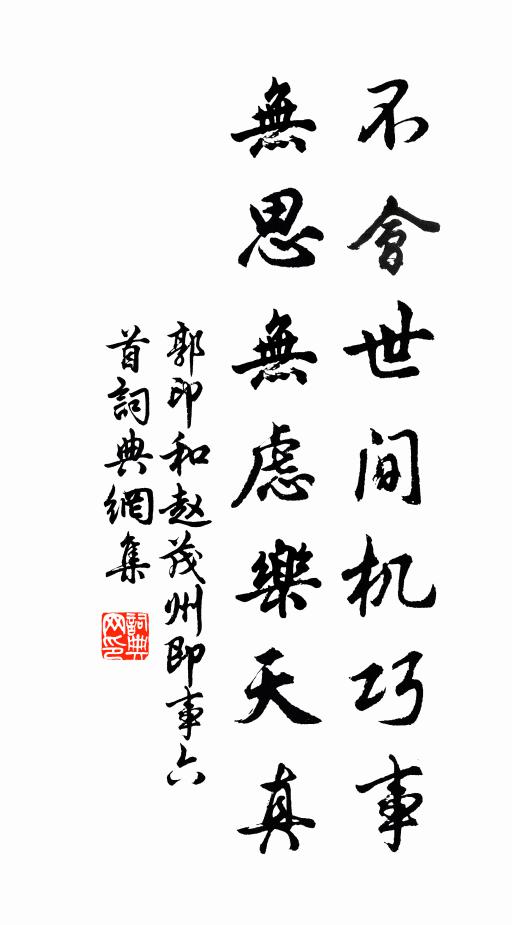 不會世间机巧事
無思無慮樂天真
郭印和赵茂州即事六
首詞典網集
詞典网印